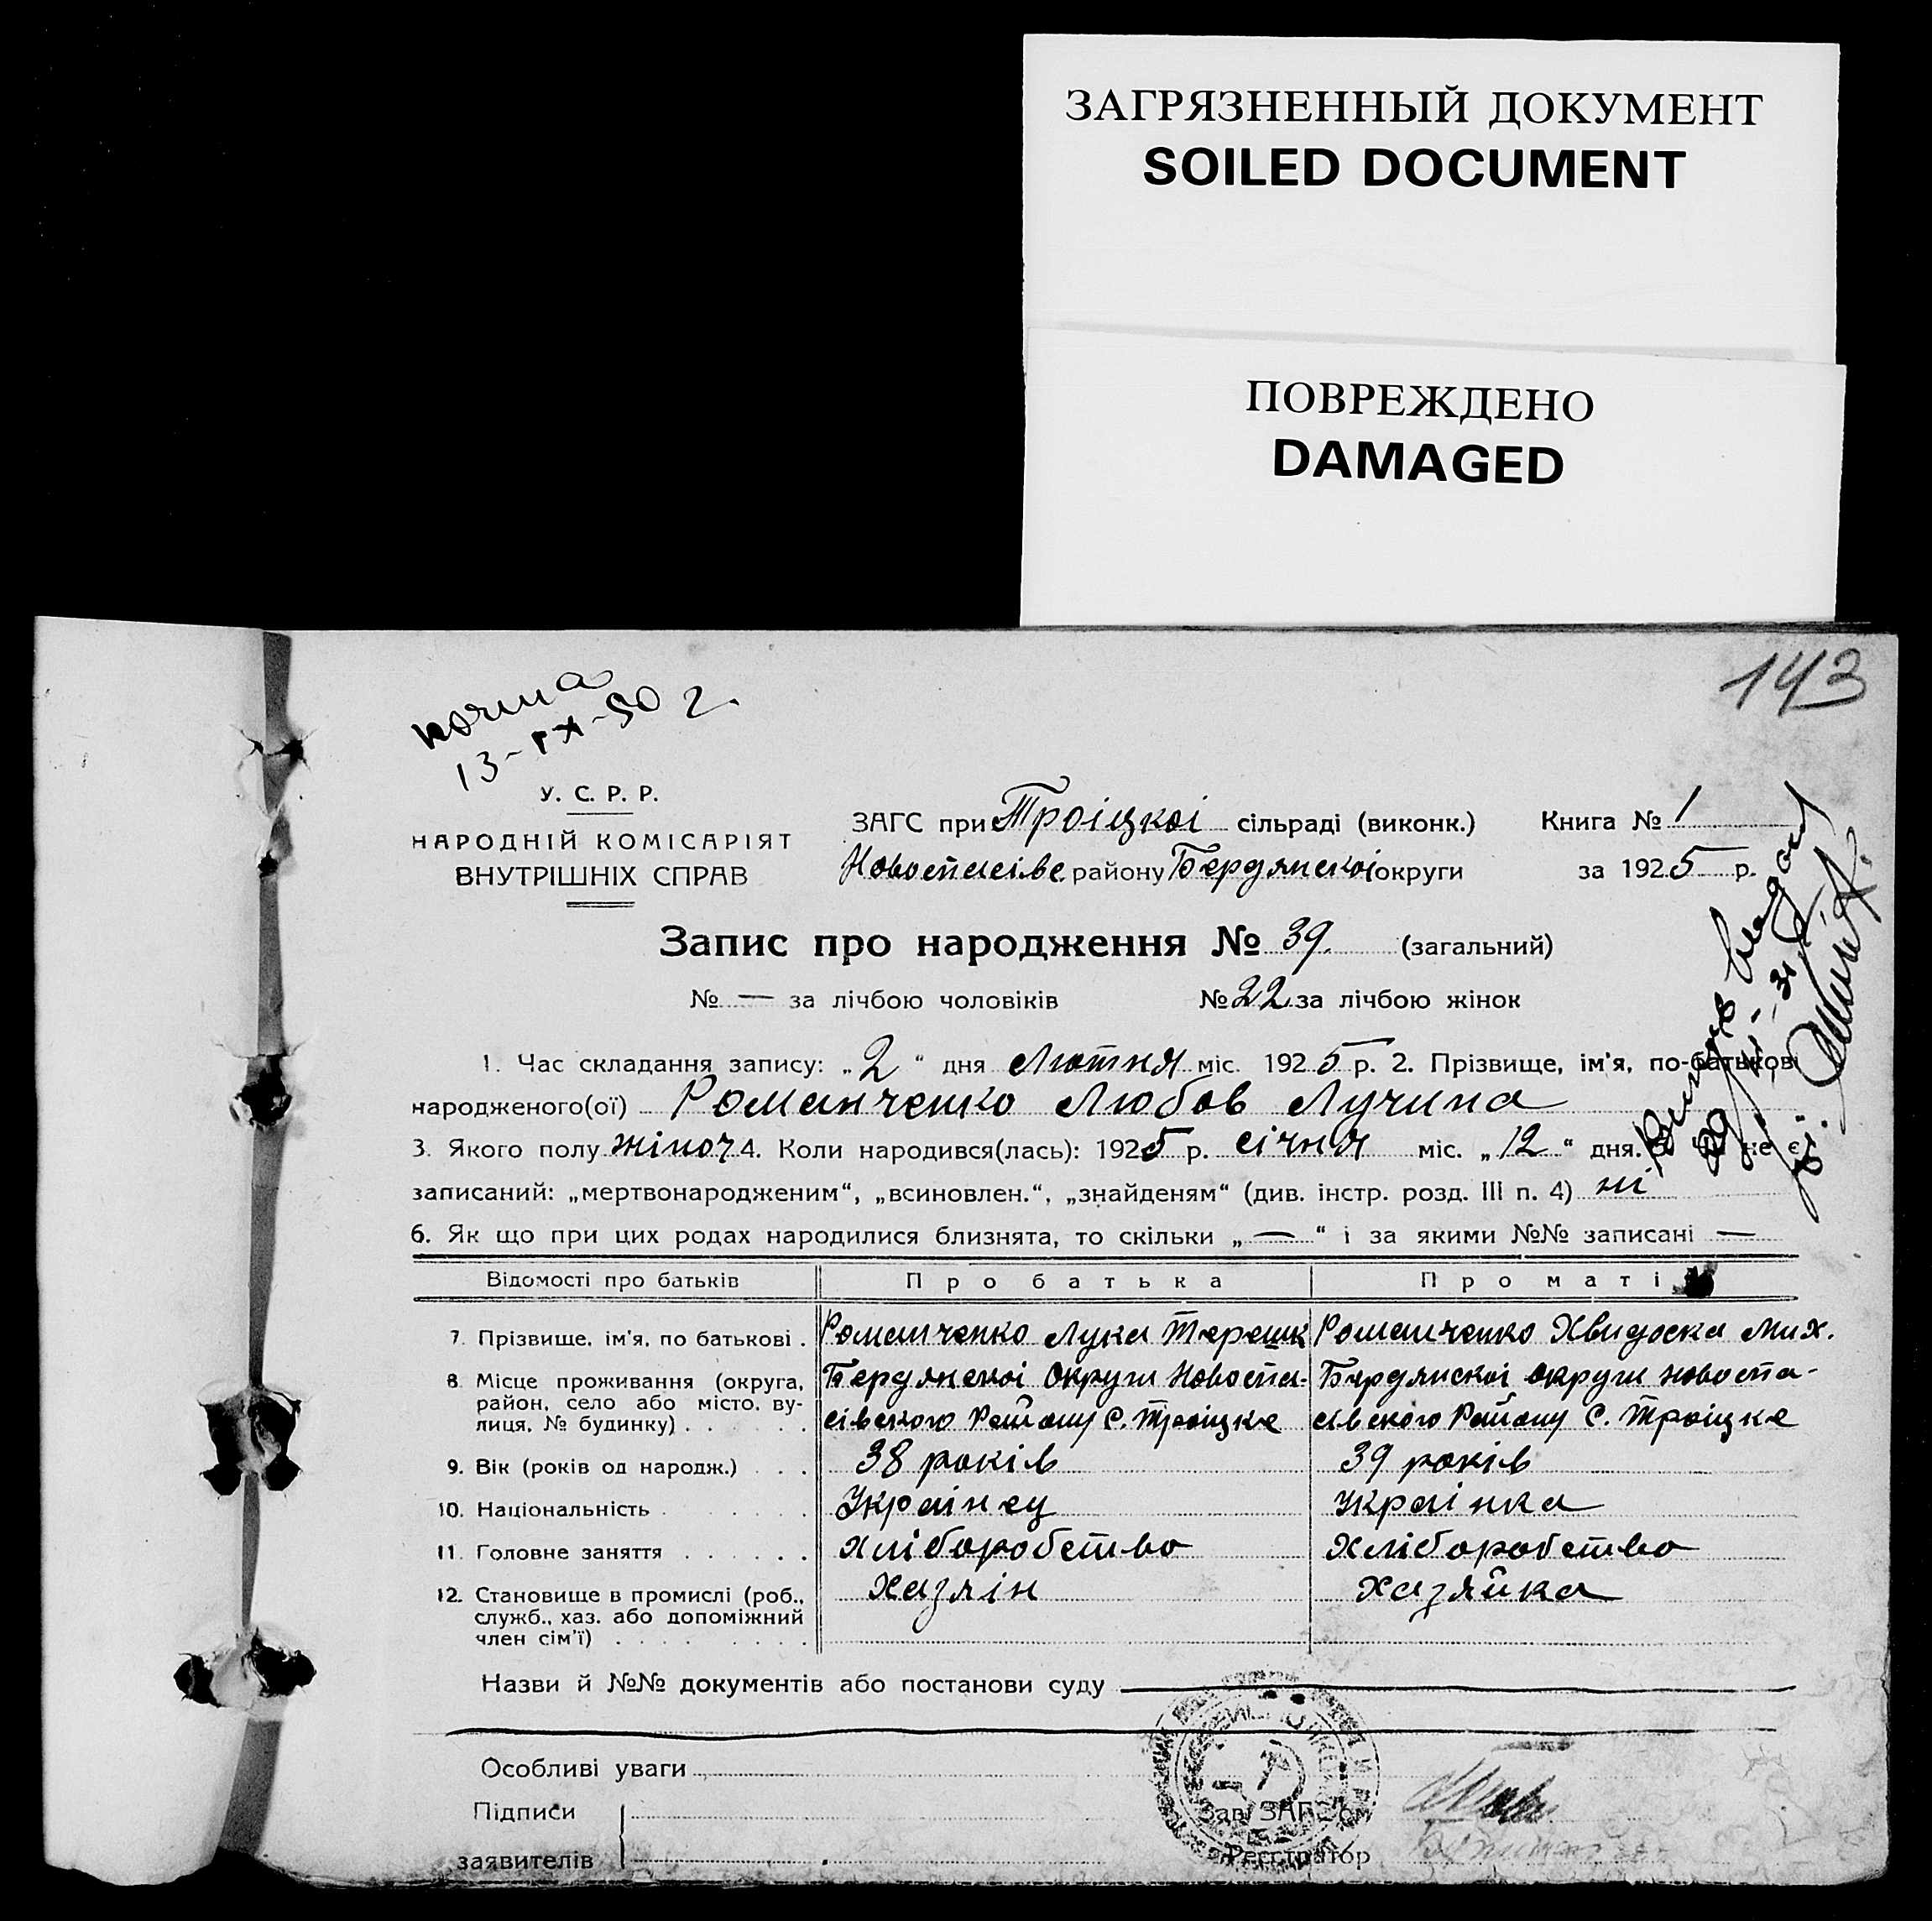 ЗАГРЯЗНЕННЫЙ ДОКУМЕНТ
SOILED DOCUMENT
ПОВРЕЖДЕНО
DAMAGED
143
копия
13-IX-50 г.
У. С. Р. Р.
НАРОДНІЙ КОМІСАРІЯТ
ВНУТРІШНІХ СПРАВ
ЗАГС при Троіцкоі сільраді (виконк.)
Новоспасівс. району Бердянскоі округи
Книга № 1
за 1925 р.
Запис про народження № 39. (загальний)
№ — за лічбою чоловіків № 22 за лічбою жінок
1. Час складання запису: „2“ дня Лютня міс. 1925 р. 2. Прізвище, ім'я, по-батькові
народженого(ої) Романченко Любов Лучина
3. Якого полу жіноч 4. Коли народився(лась): 1925 р. січня міс. „12“ дня. не є
записаний: „мертвонародженим“, „всиновлен.“, „знайденям“ (див. інстр. розд. III п. 4) ні
6. Як що при цих родах народилися близнята, то скільки „—“ і за якими №№ записані —
Відомості про батьків Про батька Про маті
7. Прізвище, ім'я, по батькові . Романченко Лука Терешк Романченко Хвидоска Мих.
8. Місце проживання (округа, Бердянскоі Округи Новоспа- Бердянскоі округи Новоспа-
район, село або місто, ву-
лиця, № будинку) . . . . . . сівского Району С. Троіцке сівского Району С. Троіцке
9. Вік (років од народж.) . . . 38 років 39 років
10. Національність . . . . . . . Украінец Украінка
11. Головне заняття . . . . . . хліборобство хліборобство
12. Становище в промислі (роб., хазяін хазяйка
служб., хаз. або допоміжний
член сім'ї) . . . . . . . .
Назви й №№ документів або постанови суду
Особливі уваги
Підписи
заявителів
Зав. ЗАГС'ом
Реєстратор